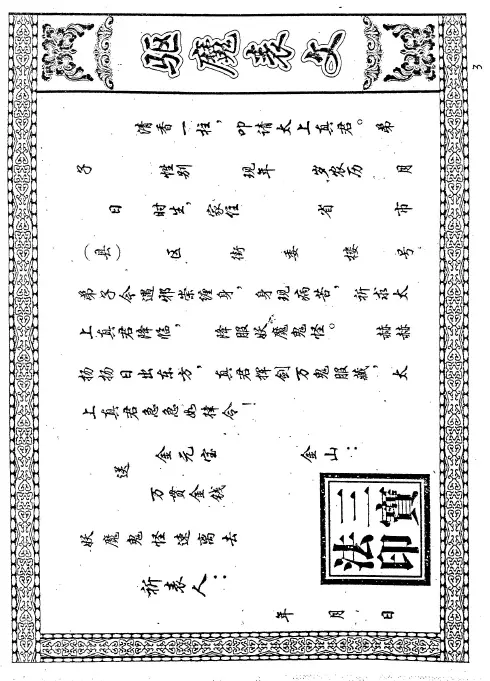 3
驱魔表文
清香一柱，叩请太上真君。弟
子 性别 现年 岁农历 月
日 时生，家住 省 市
（县） 区 街 委 楼 号
弟子今遇邪祟缠身，身现病苦，祈求太
上真君降临， 降服妖魔鬼怪。 赫赫
扬扬日出东方， 真君挥剑万鬼服藏，太
上真君急急如律令！
送 金元宝 金山：
万贯金钱
妖魔鬼怪速离去
祈表人：
年 月 日
三寳
法印